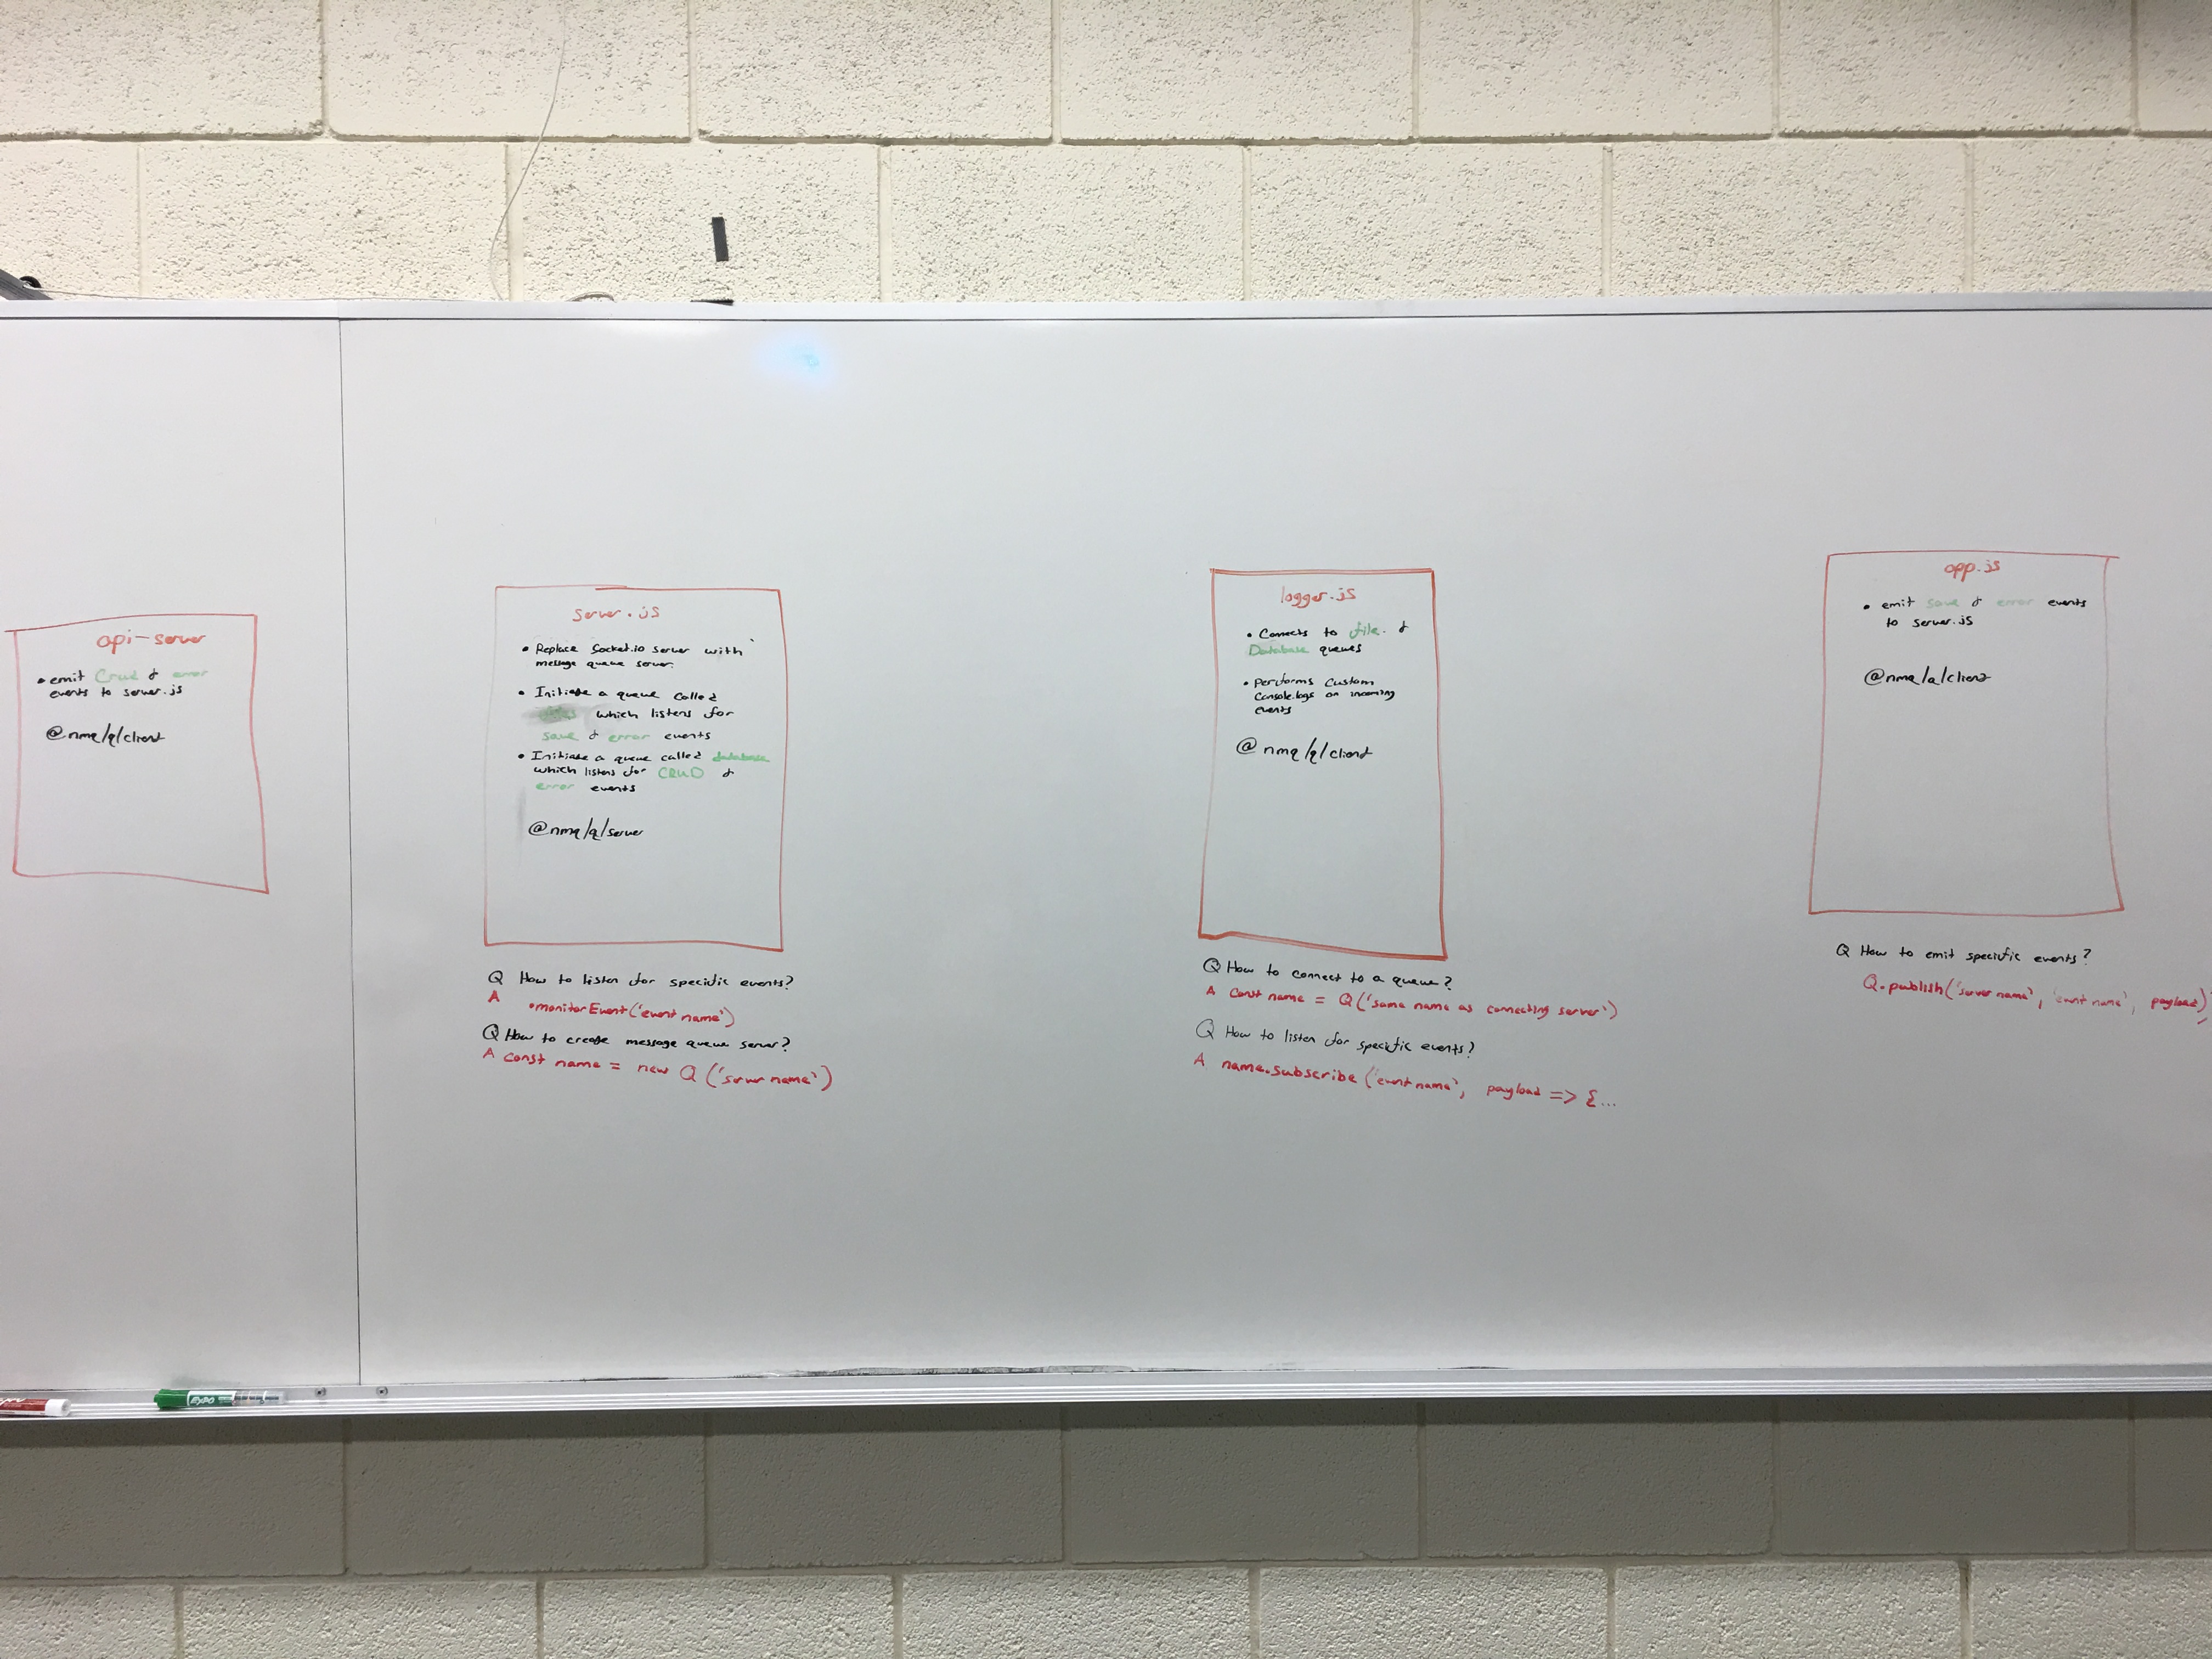 api-server
• emit Crud & error
events to server.js
@nmq/q/client
server.js
• Replace Socket.io server with
message queue server.
• Initiate a queue called
which listens for
save & error events
• Initiate a queue called database
which listens for CRUD &
error events
@nmq/q/server
Q How to listen for specific events?
A •monitorEvent('event name')
Q How to create message queue server?
A const name = new Q('server name')
logger.js
• Connects to file &
Database queues
• performs custom
console.logs on incoming
events
@nmq/q/client
Q How to connect to a queue?
A const name = Q('same name as connecting server')
Q How to listen for specific events?
A name.subscribe('event name', payload => {...
app.js
• emit save & error events
to server.js
@nmq/q/client
Q How to emit specific events?
Q.publish('server name', 'event name', payload)
EXPO